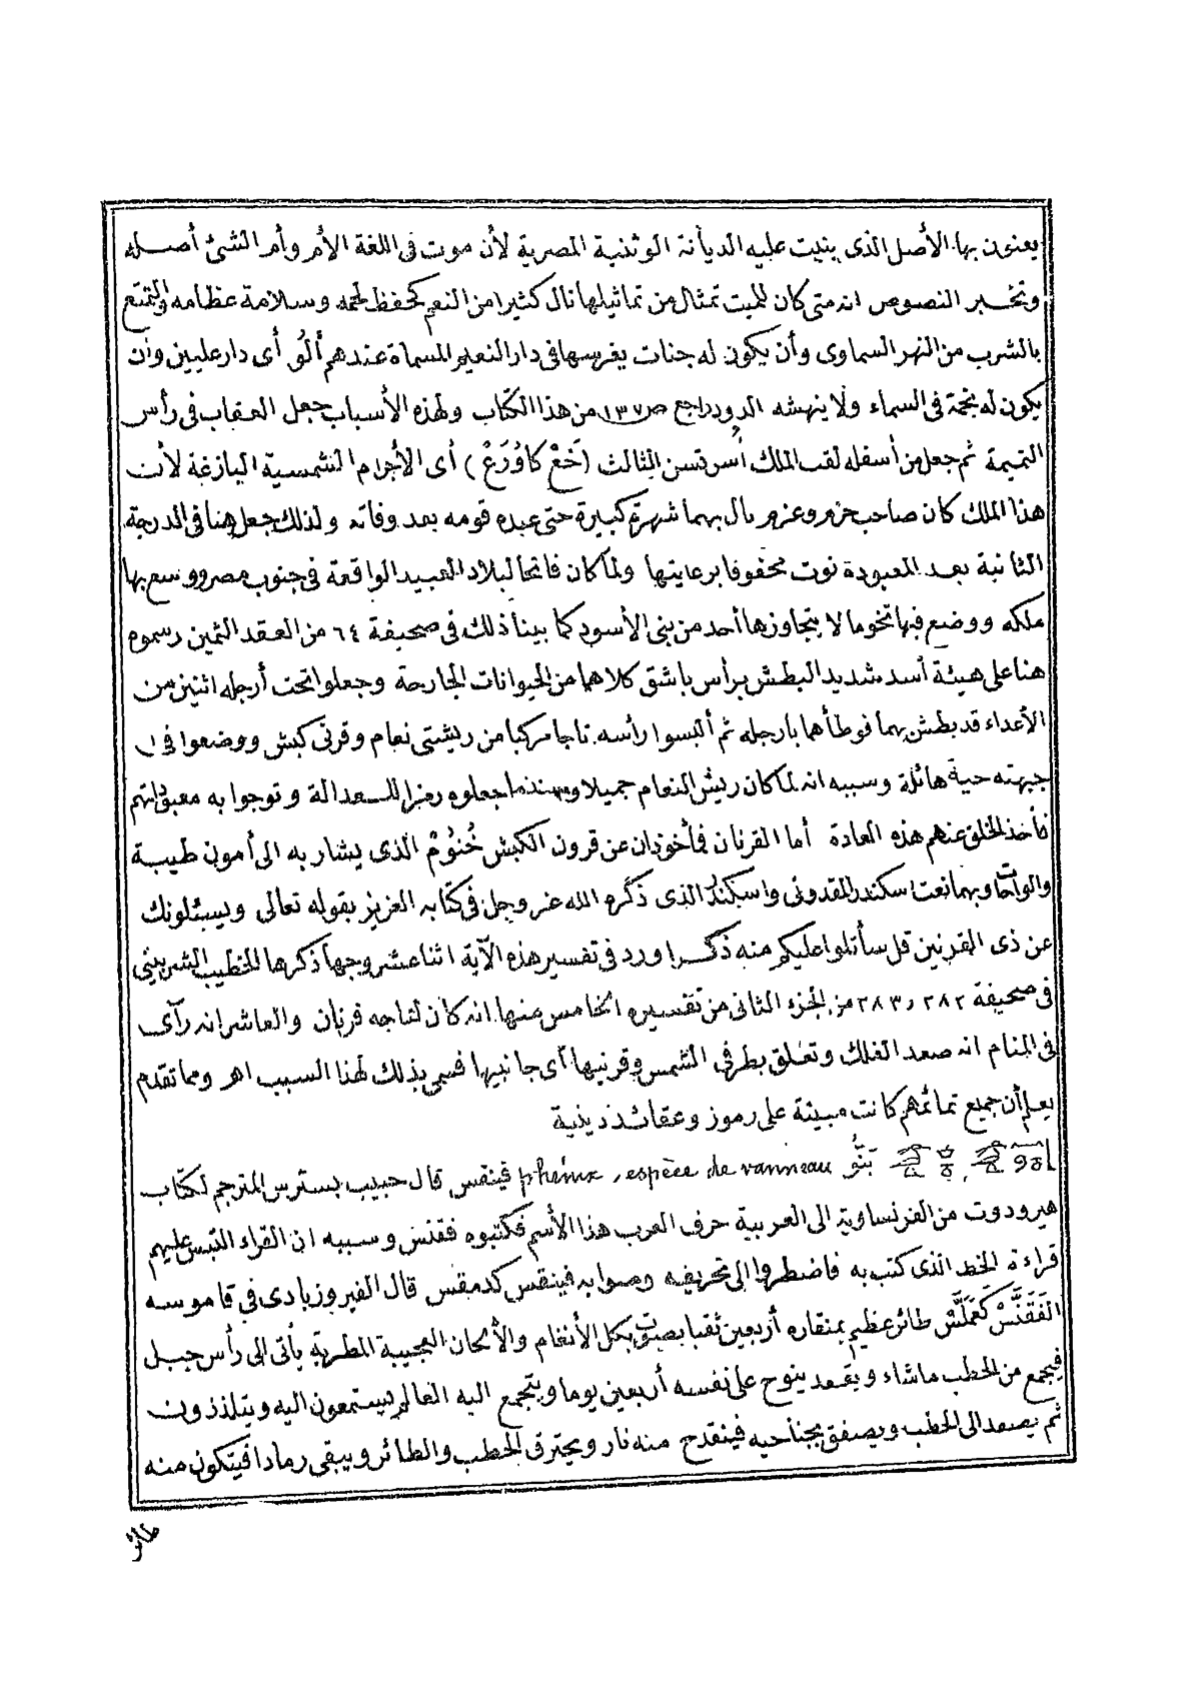 يعنون بها الأصل الذى بنيت عليه الديانة الوثنية المصرية لأن موت فى اللغة الأم وأم الشئ أصله
وتخبر النصوص انه متى كان للميت تمثال من تماثيلها نال كثيرا من النعم كحفظ لحمه وسلامة عظامه والتمتع
بالشرب من النهر السماوى وأن يكون له جنات يغرسها فى دار النعيم المسماة عندهم أَلُو أى دار عليين وأن
يكون له نجمة فى السماء ولا ينهشه الدود راجع ص ١٣٧ من هذا الكتاب ولهذه الأسباب جعل العقاب فى رأس
التميمة ثم جعل من أسفله لقب الملك أُسرتسن الثالث (خَعْ كَاوُرَعْ) أى الأجرام الشمسية البازغة لأن
هذا الملك كان صاحب حزم وعزم نال بهما شهرة كبيرة حتى عبده قومه بعد وفاته ولذلك جعل هنا فى الدرجة
الثانية بعد المعبودة نوت محفوفا برعايتها ولما كان فاتحا لبلاد العبيد الواقعة فى جنوب مصر ووسع بها
ملكه ووضع فيها تخوما لا يتجاوزها أحد من بنى الأسود كما بينا ذلك فى صحيفة ٦٤ من العقد الثمين رسموه
هنا على هيئة أسد شديد البطش برأس باشق كلاهما من الحيوانات الجارحة وجعلوا تحت أرجله اثنين من
الأعداء قد بطش بهما فوطأهما بأرجله ثم ألبسوا رأسه تاجا مركبا من ريشتى نعام وقرنى كبش ووضعوا فى
جبهته حية هائلة وسببه انه لما كان ريش النعام جميلا جعلوه رمزا للعدالة وتوجوا به معبوداتهم
فأخذ الخلق عنهم هذه العادة أما القرنان فمأخوذان عن قرون الكبش خْنُوُمْ الذى يشار به الى أمون طيبة
والواحات وبهما نعت اسكندر المقدونى واسكندر الذى ذكره الله عز وجل فى كتابه العزيز بقوله تعالى ويسئلونك
عن ذى القرنين قل سأتلوا عليكم منه ذكرا ورد فى تفسير هذه الآية اثنا عشر وجها ذكرها الخطيب الشربينى
فى صحيفة ٢٨٢ و٢٨٣ من الجزء الثانى من تفسيره الخامس منها انه كان لتاجه قرنان والعاشر انه رآى
فى المنام انه صعد الفلك وتعلق بطرفى الشمس وقرنيها أى جانبيها فسمى بذلك لهذا السبب اهـ ومما تقدم
يعلم أن جميع تمائمهم كانت مبينة على رموز وعقائد دينية
بَنُّو phénix, espèce de vanneau فينقس قال حبيب بسترس المترجم لكتاب
هيرودوت من الفرنساوية الى العربية حرف العرب هذا الأسم فكتبوه فقنس وسببه ان القراء التبس عليهم
قراءة الخط الذى كتب به فاضطروا الى تحريفه وصوابه فينقس كدمقس قال الفيروزبادى فى قاموسه
الفَقَنَّسْ كَعَمَلَّسْ طائر عظيم بمنقاره أربعين ثقبا يصوت بكل الأنغام والألحان العجيبة المطربة يأتى الى رأس جبل
فيجمع من الحطب ماشاء ويقعد ينوح على نفسه أربعين يوما ويتجمع اليه العالم يستمعون اليه ويتلذذون
ثم يصعد الى الحطب ويصفق بجناحيه فينقدح منه نار ويحترق الحطب والطائر ويبقى رمادا فيتكون منه
طائر